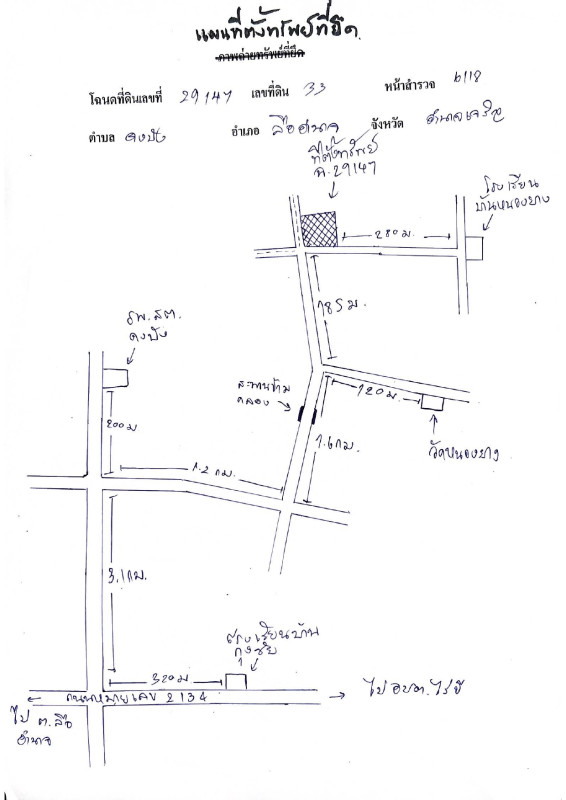 แผนที่ตั้งทรัพย์ที่ยึด
ภาพถ่ายทรัพย์ที่ยึด
โฉนดที่ดินเลขที่ 29147 เลขที่ดิน 33 หน้าสำรวจ 6118
ตำบล ดงบัง อำเภอ ลืออำนาจ จังหวัด อำนาจเจริญ
ที่ตั้งทรัพย์
ฉ.29147
โรงเรียน
บ้านหนองยาง
280 ม.
785 ม.
รพ.สต.
ดงบัง
สะพานข้าม
คลอง
120 ม.
200 ม
1.6 กม.
วัดหนองยาง
1.2 กม.
3.1 กม.
โรงเรียนบ้าน
กุงชัย
320 ม
ถนนหมายเลข 2134
ไป อบต.ไร่ขี
ไป ต.ลือ
อำนาจ